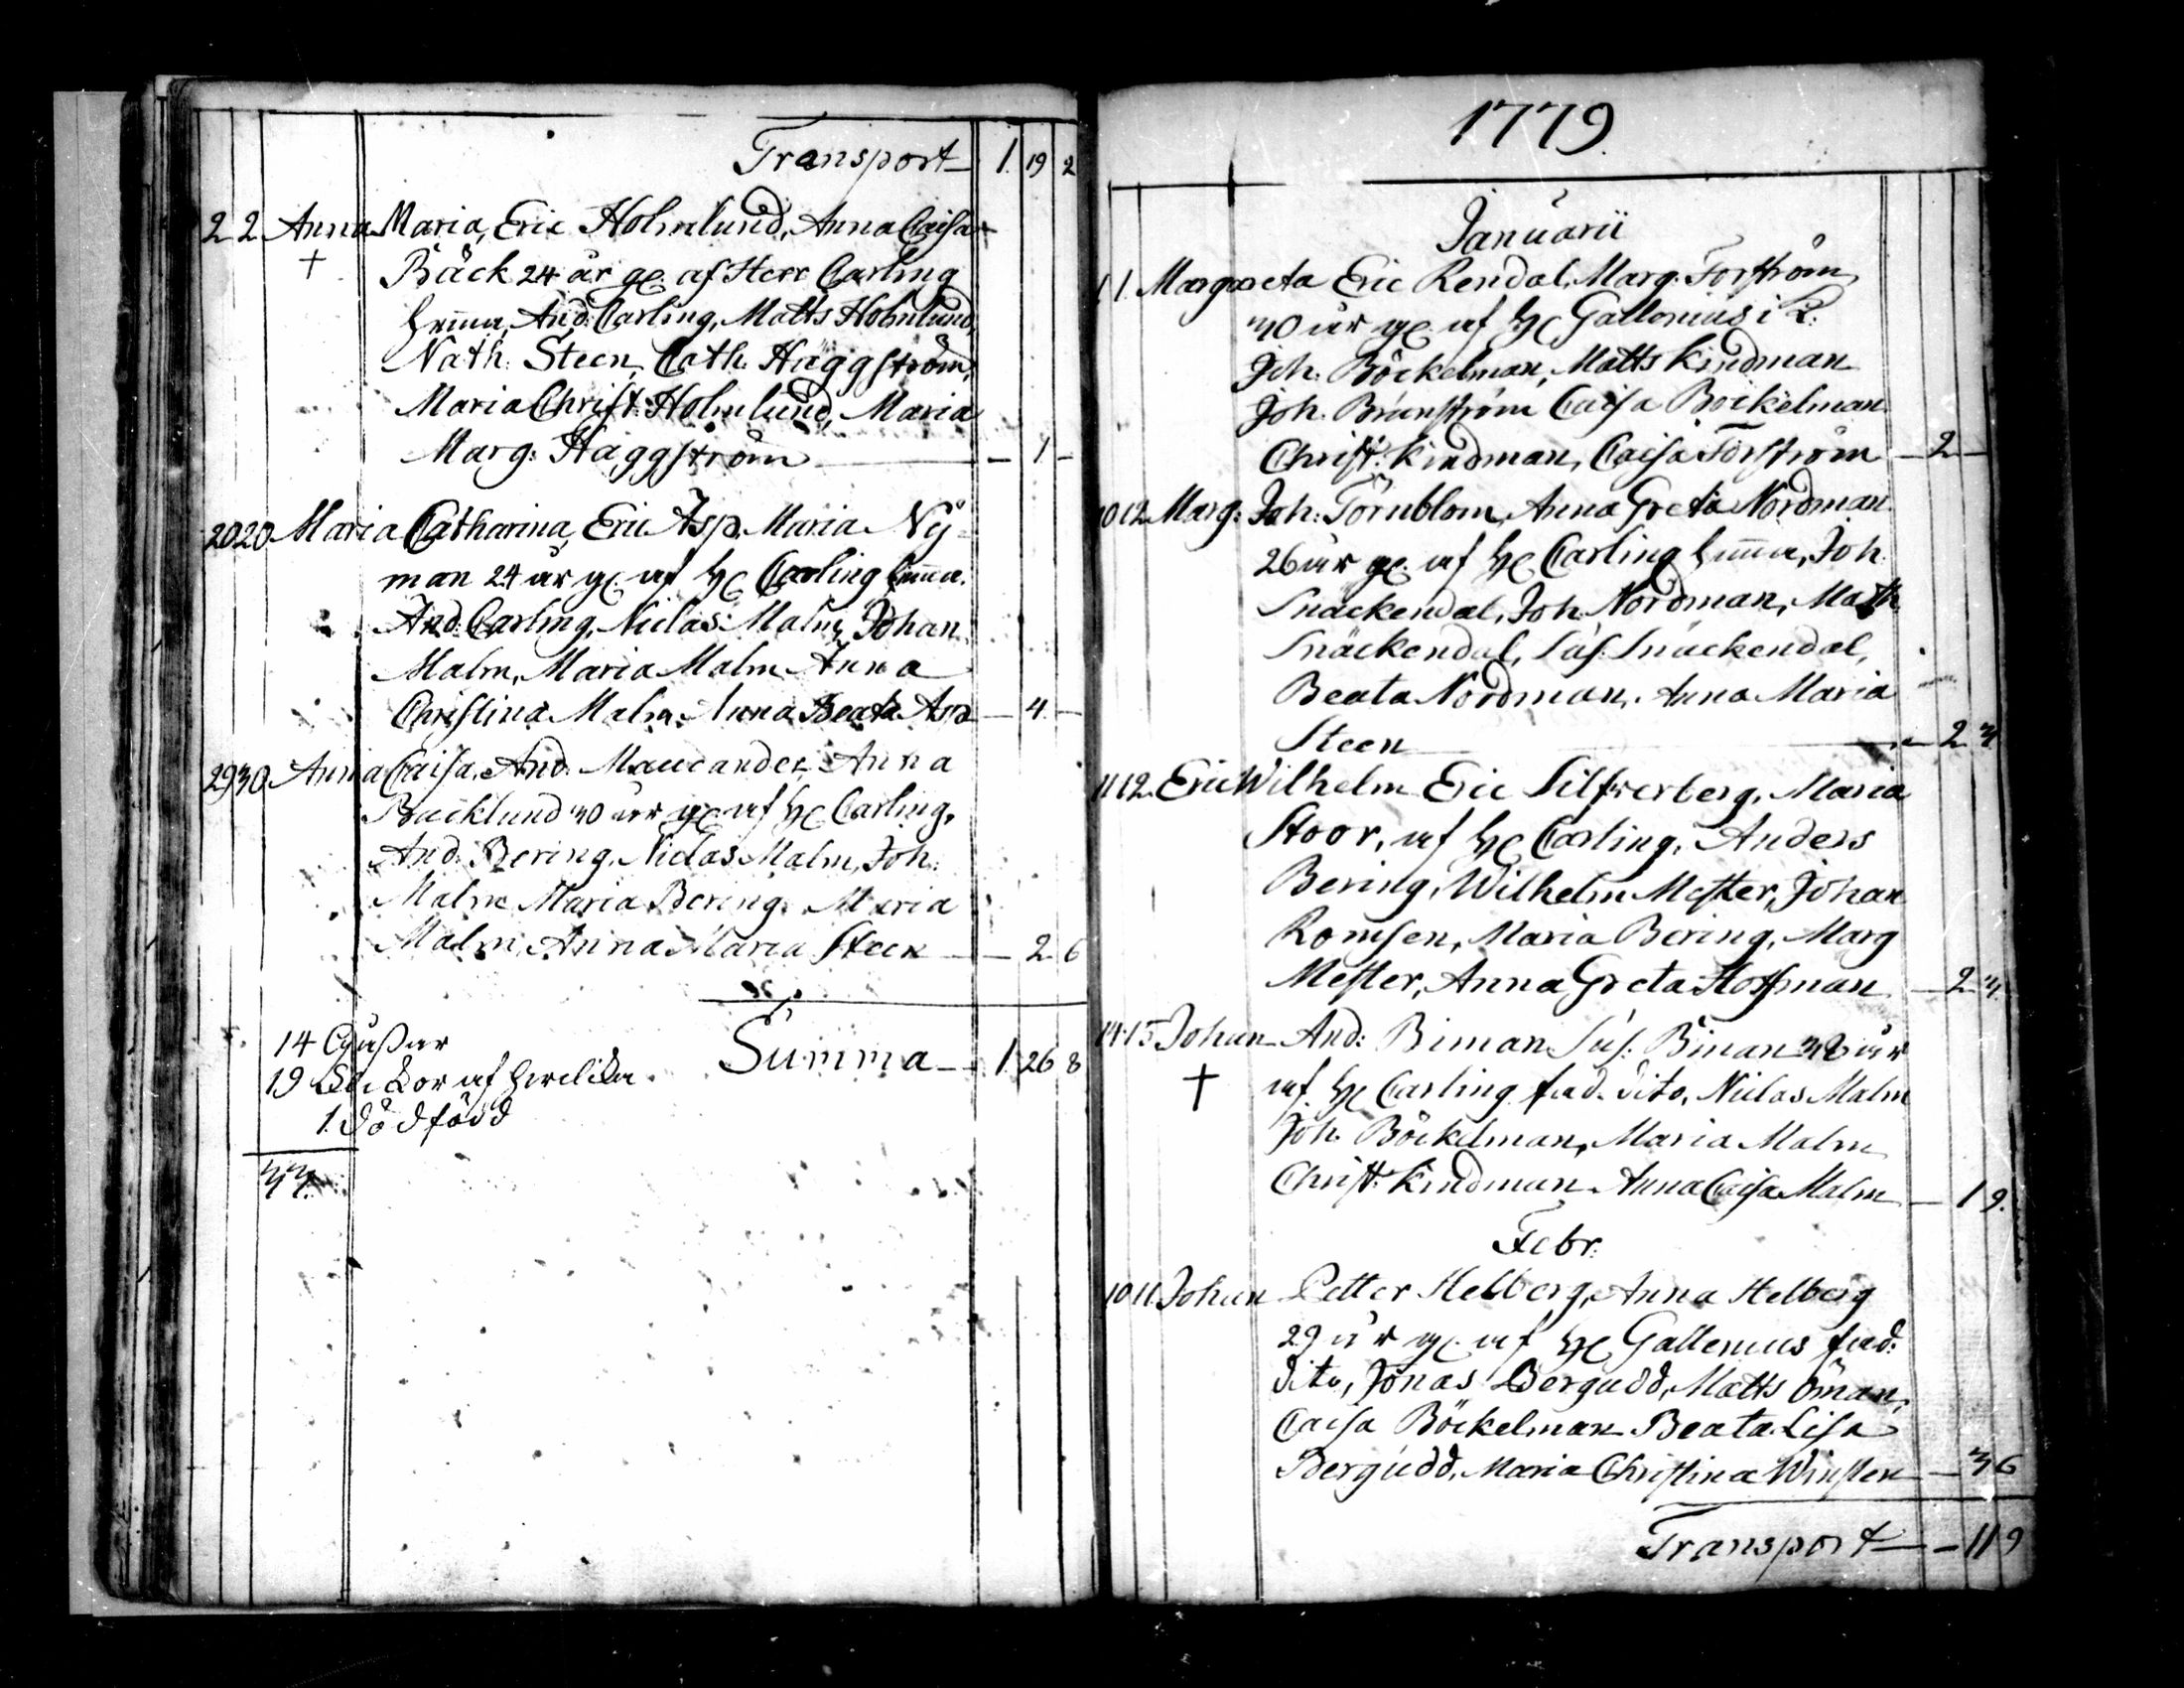 Transport 1. 19 2
2 2 Anna Maria, Eric Holmlund, Anna Caisa
† Bäck 24 år gl. af Herr Carling
hemma, And. Carling, Matts Holmlund,
Nath. Steen, Cath. Häggström,
Maria Christ: Holmlund, Maria
Marg: Häggström — 1 —
20 20 Maria Catharina, Eric Asp, Maria Ny-
man 24 år gl. af H. Carling hemma.
And. Carling, Niclas Malm, Johan
Malm, Maria Malm Anna
Christina Malm, Anna Beata Asp — 4 —
29 30 Anna Caisa, And. Anna
Backlund 30 år gl. af H. Carling,
And. Bering, Niclas Malm, Joh.
Malm Maria Bering, Maria
Malm, Anna Maria Steen — 2 6
14 Gåssar
Summa — 1 26 8
19 af hwilka
1 dödfödd
33.
1779.
Januarii
1 1. Margareta Eric Rendal, Marg. Forsström
30 år gl. af H. Gallenius i L:
Joh. Böckelman, Matts Kindman
Joh. Brunström Caisa Böckelman
Christ. Kindman, Caisa Forsström — 2 —
10 12 Marg: Joh: Törnblom, Anna Greta Nordman
26 år gl. af H. Carling hemma, Joh.
Snäckendal, Joh. Nordman, Math
Snäckendal, Sus. Snäckendal,
Beata Nordman, Anna Maria
Steen — 2 3.
11 12. Eric Wilhelm Eric Silfverberg, Maria
Stoor, af H. Carling, Anders
Bering, Wilhelm Mester, Johan
Romsen, Maria Bering, Marg
Mester, Anna Greta Hoffman — 2 3.
14 15 Johan And: Biman Sus: Biman 38 år
† af H. Carling fad. dito, Niclas Malm
Joh. Böckelman, Maria Malm
Christ. Kindman Anna Caisa Malm — 1 9.
Febr.
10 11. Johan Petter Helberg, Anna Helberg
29 år gl. af H. Gallenius fad:
dito, Jonas Bergudd, Matts Öman,
Caisa Böckelman Beata Lisa
Bergudd, Maria Christina Winsten — 3 6
Transport — 11 9